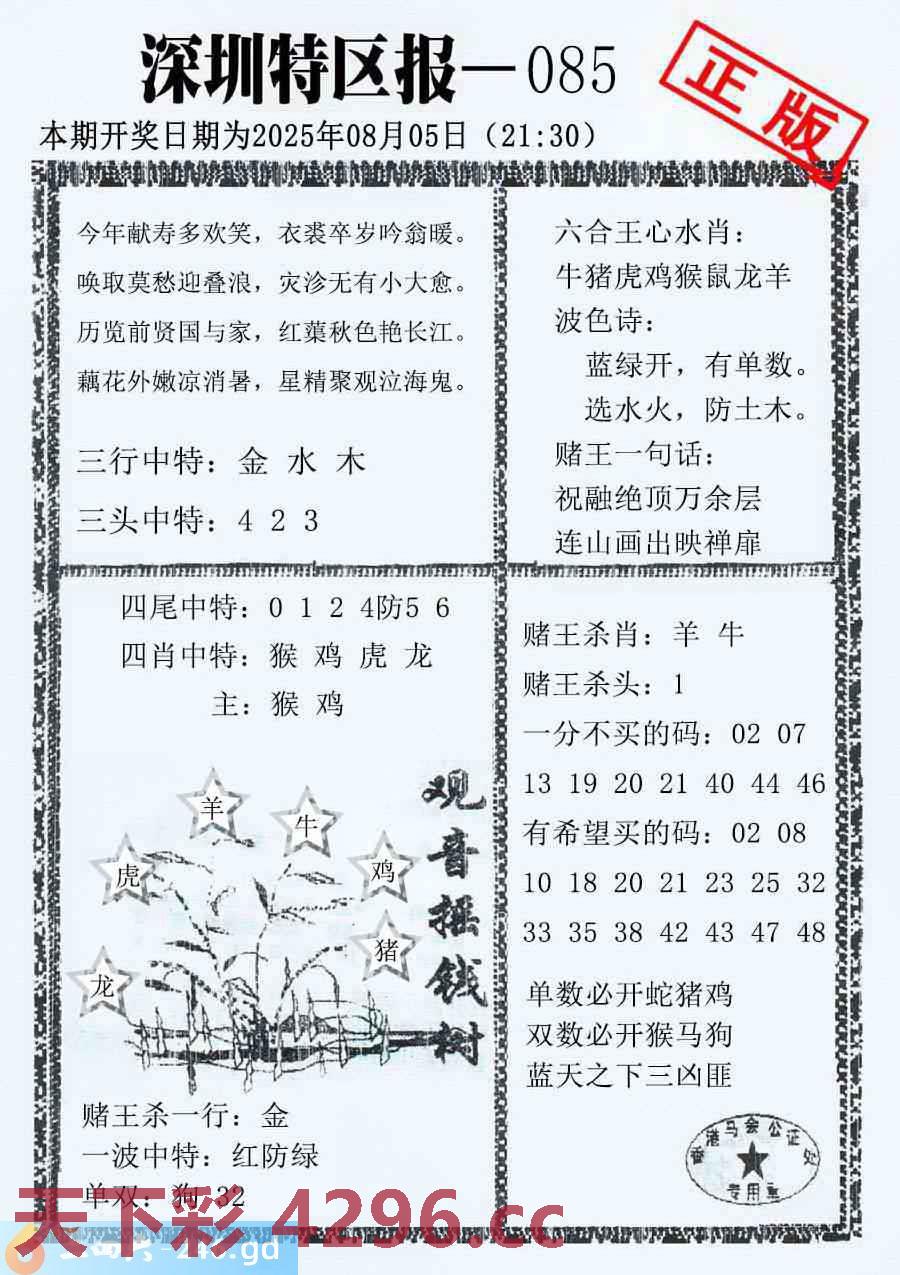 深圳特区报—085
正版
本期开奖日期为2025年08月05日（21:30）
今年献寿多欢笑，衣裘卒岁吟翁暖。
唤取莫愁迎叠浪，灾沴无有小大愈。
历览前贤国与家，红蕖秋色艳长江。
藕花外嫩凉消暑，星精聚观泣海鬼。
三行中特：金 水 木
三头中特：4 2 3
六合王心水肖：
牛猪虎鸡猴鼠龙羊
波色诗：
蓝绿开，有单数。
选水火，防土木。
赌王一句话：
祝融绝顶万余层
连山画出映禅扉
四尾中特：0 1 2 4防5 6
四肖中特：猴 鸡 虎 龙
主：猴 鸡
观音摇钱树
羊
牛
虎
鸡
猪
龙
赌王杀一行：金
一波中特：红防绿
单双：狗 32
赌王杀肖：羊 牛
赌王杀头：1
一分不买的码：02 07
13 19 20 21 40 44 46
有希望买的码：02 08
10 18 20 21 23 25 32
33 35 38 42 43 47 48
单数必开蛇猪鸡
双数必开猴马狗
蓝天之下三凶匪
香港马会公证处
专用章
天下彩 4296.cc